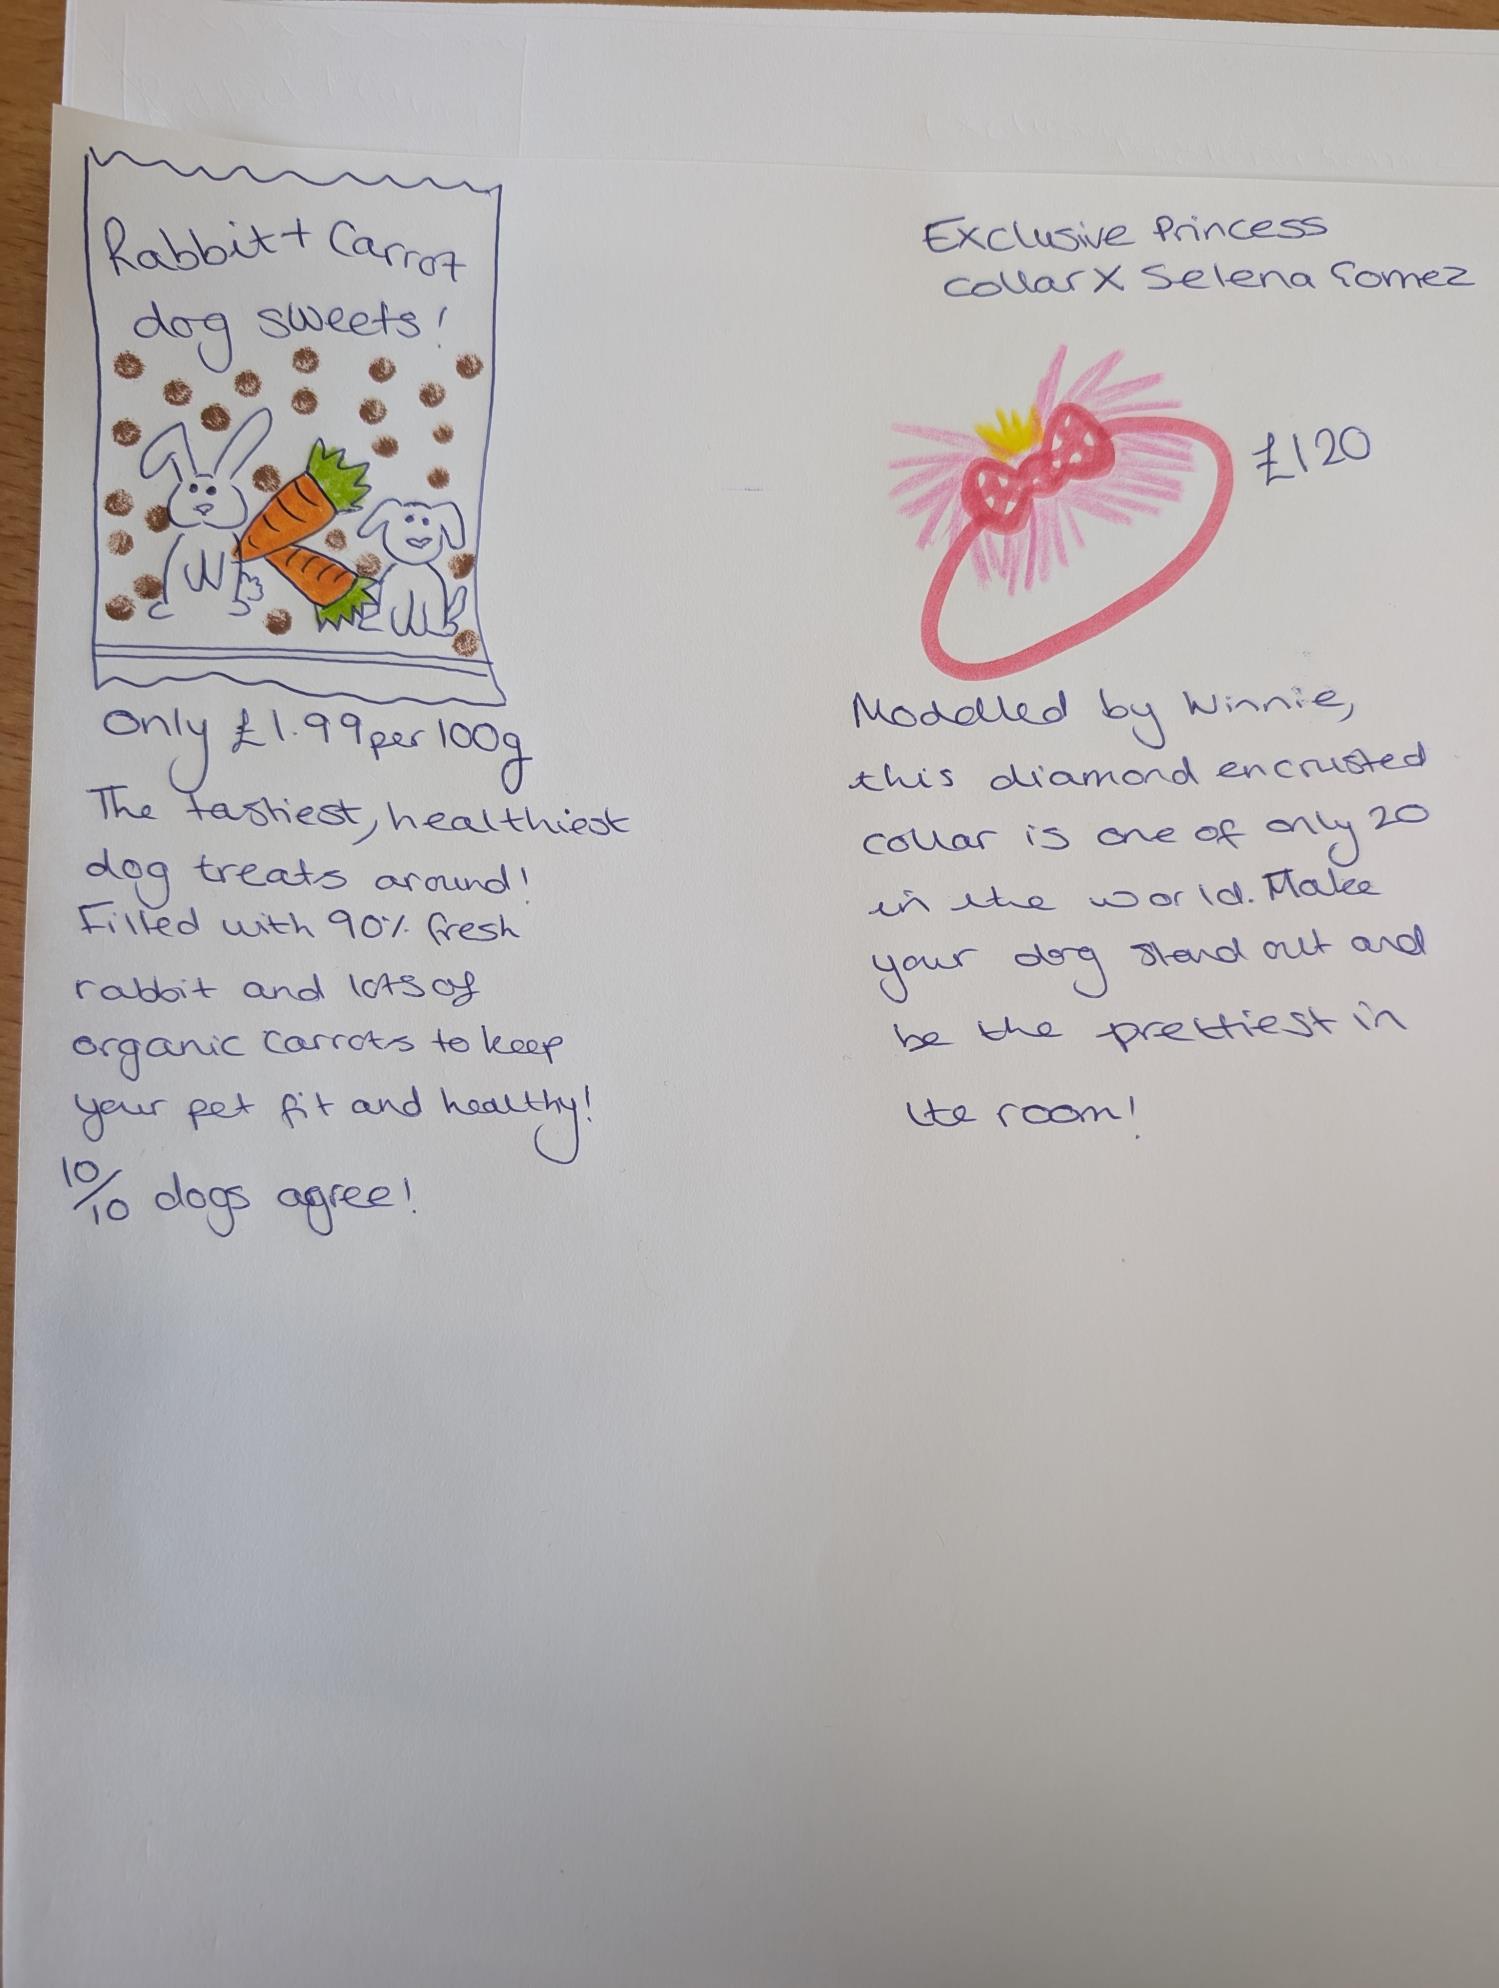 Rabbit + Carrot
dog sweets!
Only £1.99 per 100g
The tastiest, healthiest
dog treats around!
Filled with 90% fresh
rabbit and lots of
organic carrots to keep
your pet fit and healthy!
10/10 dogs agree!
Exclusive Princess
collar X Selena Gomez
£120
Modelled by Winnie,
this diamond encrusted
collar is one of only 20
in the world. Make
your dog stand out and
be the prettiest in
the room!